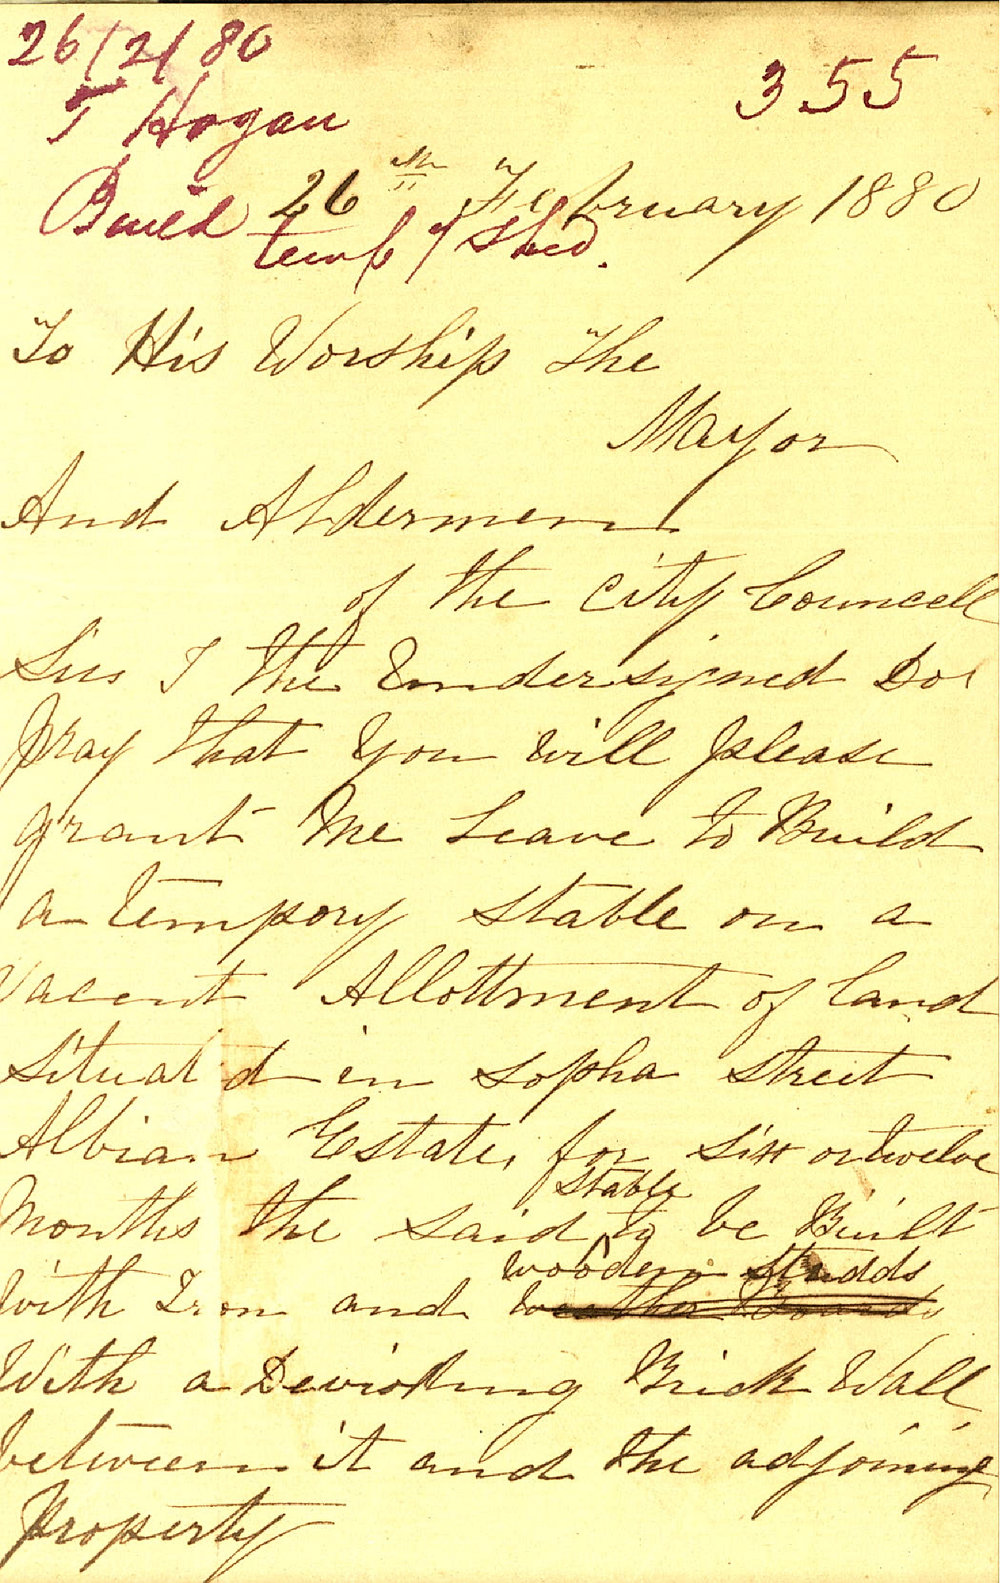 26/2/80
355
T Hogan
26th February 1880
Build
tempy Shed.
To His Worship The
Mayor
And Aldermen
of the City Councell
Sirs I the Undersigned Do
Pray that You will please
grant Me Leave to Build
a tempory Stable on a
Vacent Allottment of Land
Situated in Sopha Street
Albian Estate, for Six or twelve
Stable
Months the Said to be Built
wooden Studds
With Iron and Weather Boards
With a Deviding Brick Wall
between it and the adjoining
Property